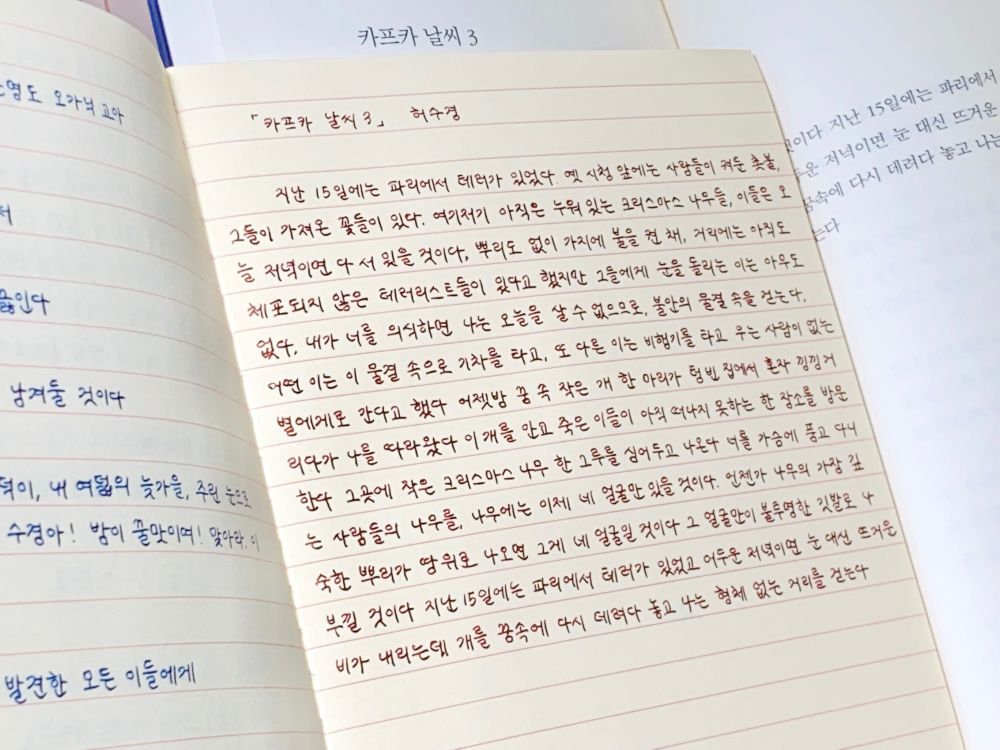 카프카 날씨 3
소영도 오가닉 고아
서
끓인다
남겨둘 것이다
덕이, 내 여덟의 늦가을, 주린 눈으로
수경아! 밤이 꿀맛이며! 맞아라. 이
발견한 모든 이들에게
「카프카 날씨 3」 허수경
지난 15일에는 파리에서 테러가 있었다. 옛 시청 앞에는 사람들이 켜둔 촛불,
그들이 가져온 꽃들이 있다. 여기저기 아직은 누워 있는 크리스마스 나무들, 이들은 오
늘 저녁이면 다 서 있을 것이다, 뿌리도 없이 가지에 불을 켠 채, 거리에는 아직도
체포되지 않은 테러리스트들이 있다고 했지만 그들에게 눈을 돌리는 이는 아무도
없다, 내가 너를 의식하면 나는 오늘을 살 수 없으므로, 불안의 물결 속을 걷는다,
어떤 이는 이 물결 속으로 기차를 타고, 또 다른 이는 비행기를 타고 우는 사람이 없는
별에게로 간다고 했다 어젯밤 꿈 속 작은 개 한 마리가 텅빈 집에서 혼자 낑낑거
리다가 나를 따라왔다 이 개를 안고 죽은 이들이 아직 떠나지 못하는 한 장소를 방문
한다 그곳에 작은 크리스마스 나무 한 그루를 심어두고 나온다 너를 가슴에 품고 다니
는 사람들의 나무를, 나무에는 이제 네 얼굴만 있을 것이다. 언젠가 나무의 가장 깊
숙한 뿌리가 땅 위로 나오면 그게 네 얼굴일 것이다 그 얼굴만이 불투명한 깃발로 나
부낄 것이다 지난 15일에는 파리에서 테러가 있었고 어두운 저녁이면 눈 대신 뜨거운
비가 내리는데 개를 꿈속에 다시 데려다 놓고 나는 형체 없는 거리를 걷는다
것이다 지난 15일에는 파리에서
두운 저녁이면 눈 대신 뜨거운
꿈속에 다시 데려다 놓고 나는
는다